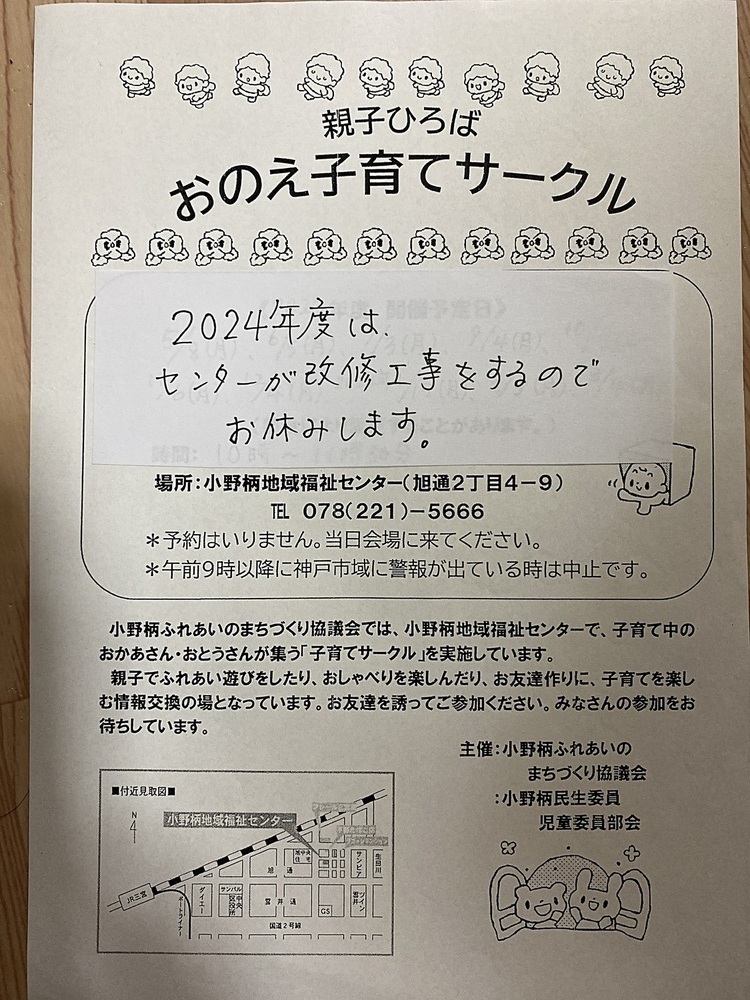 親子ひろば
おのえ子育てサークル
2024年度は、
センターが改修工事をするので
お休みします。
場所:小野柄地域福祉センター(旭通2丁目4−9)
℡ 078(221)−5666
＊予約はいりません。当日会場に来てください。
＊午前9時以降に神戸市域に警報が出ている時は中止です。
小野柄ふれあいのまちづくり協議会では、小野柄地域福祉センターで、子育て中の
おかあさん・おとうさんが集う「子育てサークル」を実施しています。
親子でふれあい遊びをしたり、おしゃべりを楽しんだり、お友達作りに、子育てを楽し
む情報交換の場となっています。お友達を誘ってご参加ください。みなさんの参加をお
待ちしています。
主催:小野柄ふれあいの
まちづくり協議会
:小野柄民生委員
児童委員部会
■付近見取図■
N
小野柄地域福祉センター
旭通
サンピア
生田川
JR三宮
ポートライナー
ダイエー
サンパル
中央区役所
雲井通
GS
ツイン雲井
国道2号線